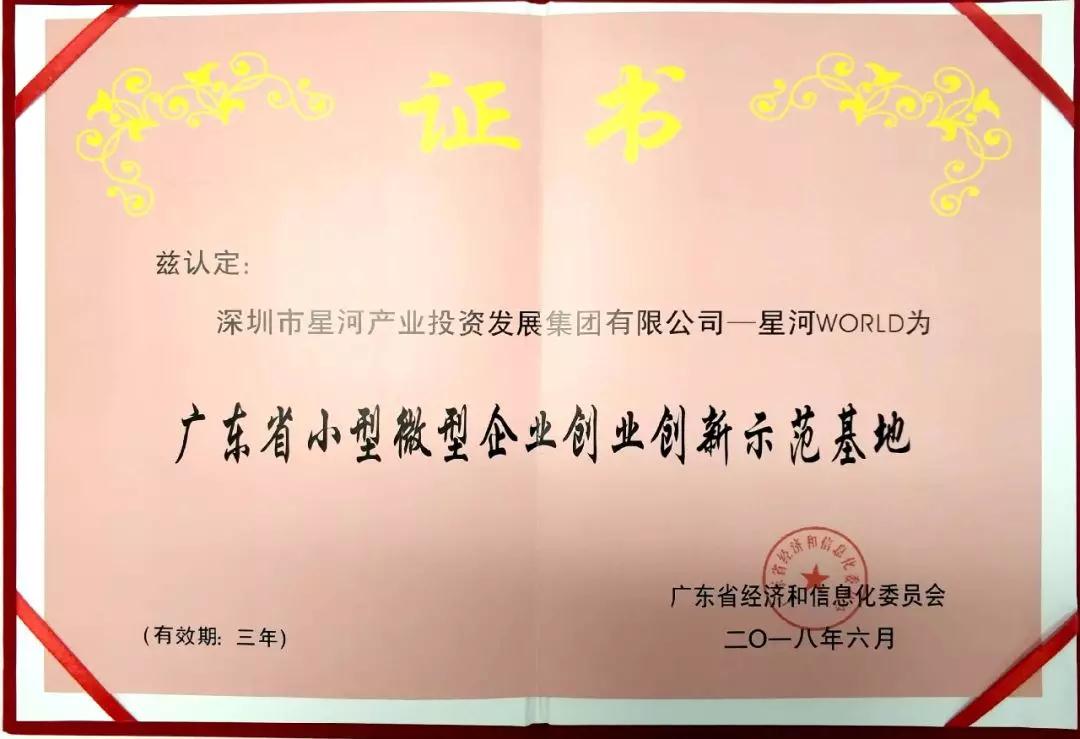 证书
兹认定：
深圳市星河产业投资发展集团有限公司—星河WORLD为
广东省小型微型企业创业创新示范基地
广东省经济和信息化委员会
广东省经济和信息化委员会
二〇一八年六月
(有效期：三年)